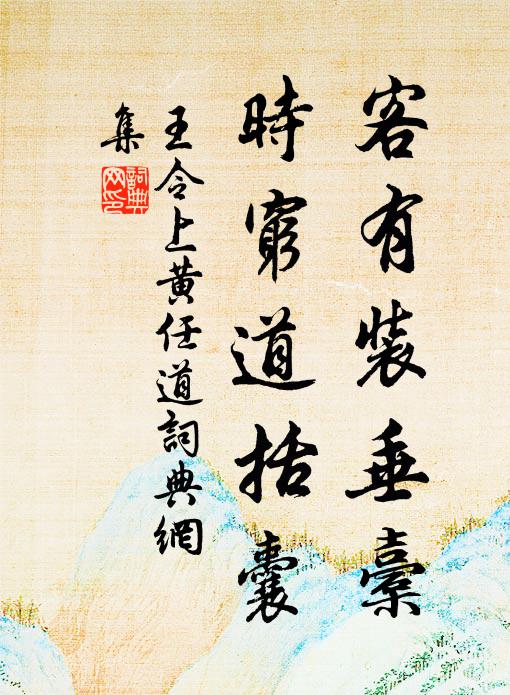 客有裝垂橐
時窮道括囊
王令上黃任道詞典網
集
詞典
网印